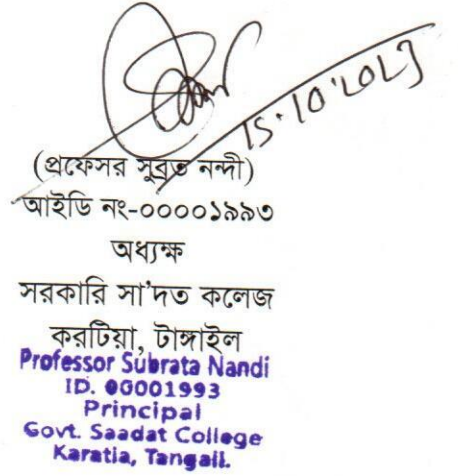 15.10.2023
(প্রফেসর সুব্রত নন্দী)
আইডি নং-০০০০১৯৯৩
অধ্যক্ষ
সরকারি সা'দত কলেজ
করটিয়া, টাঙ্গাইল
Professor Subrata Nandi
ID. 00001993
Principal
Govt. Saadat College
Karatia, Tangail.